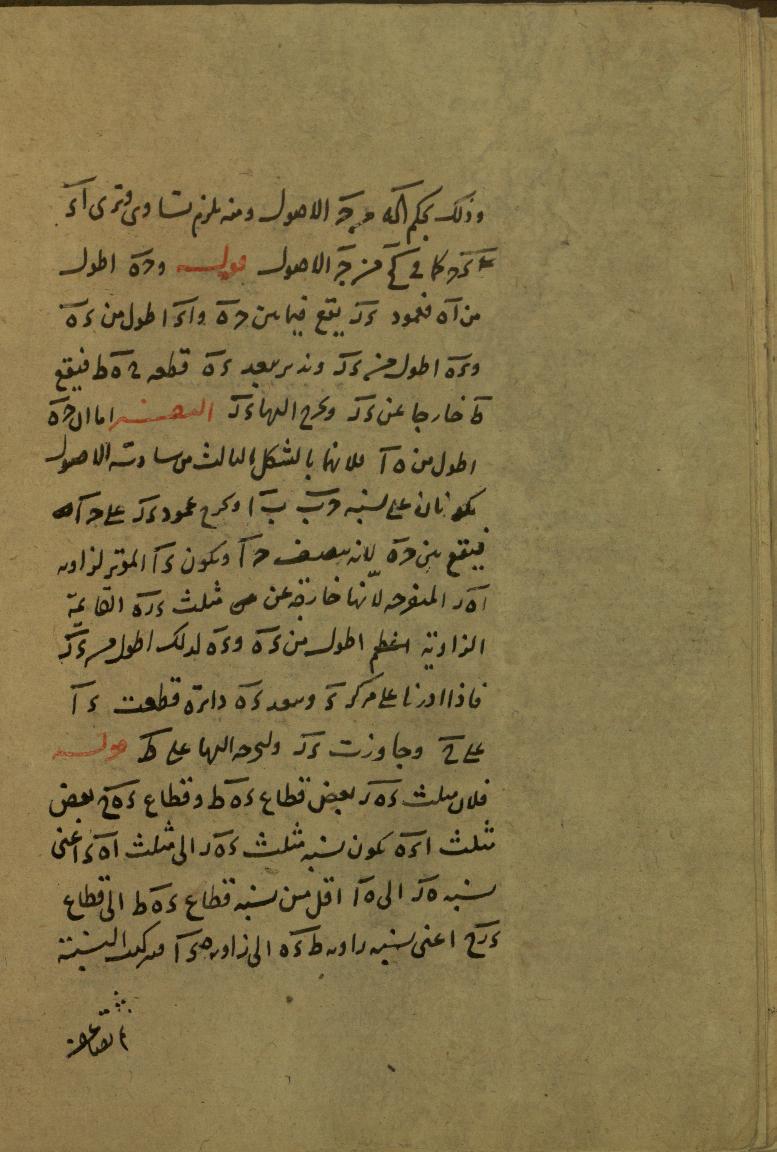 وذلك بحكم الح من ج الاصول ومنه يلزم تساوى وترى اَ دَ
دَ جَ كما فى كَح من جَ الاصول قوله وجَهَ اطول
من اَهَ فعمود دَزَ يقع فيما بين جَهَ واَدَ اطول من دَهَ
ودَهَ اطول من دَزَ وندير ببعد دَهَ قطعه حَ هَ طَ فيقع
طَ خارجا عن دَزَ ونخرج اليها دَزَ التفسير اما ان جَهَ
اطول من هَ اَ فلانهما بالشكل الثالث من سادسة الاصول
يكونان على نسبه جَ بَ بَ اَ ونخرج عمود دَزَ على جَ اَ
فيقع بين جَهَ لانه ينصف جَ اَ ويكون دَ اَ الموتر لزاويه
اَهَدَ المنفرجه لانها خارجة عن مثلث دَزَهَ القائمة
الزاوية اعظم اطول من دَهَ ودَهَ لذلك اطول من دَزَ
فاذا ادرنا على مركز دَ وببعد دَهَ دائرة قطعت دَ اَ
على حَ وجاوزت دَزَ ولنخرجه اليها على طَ قوله
فلان مثلث دَهَزَ بعض قطاع دَهَطَ وقطاع دَهَحَ بعض
مثلث اَدَهَ يكون نسبه مثلث دَهَزَ الى مثلث اَهَدَ اعنى
نسبه هَزَ الى هَ اَ اقل من نسبه قطاع دَهَطَ الى قطاع
دَهَحَ اعنى نسبه زاويه طَدَهَ الى زاويه هَدَ اَ فبتركيب النسبة